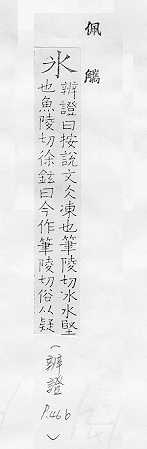 佩觿
氷
辨證曰按說文仌凍也筆陵切冰水堅
也魚陵切徐鉉曰今作筆陵切俗以疑
(辨證
P.46b)